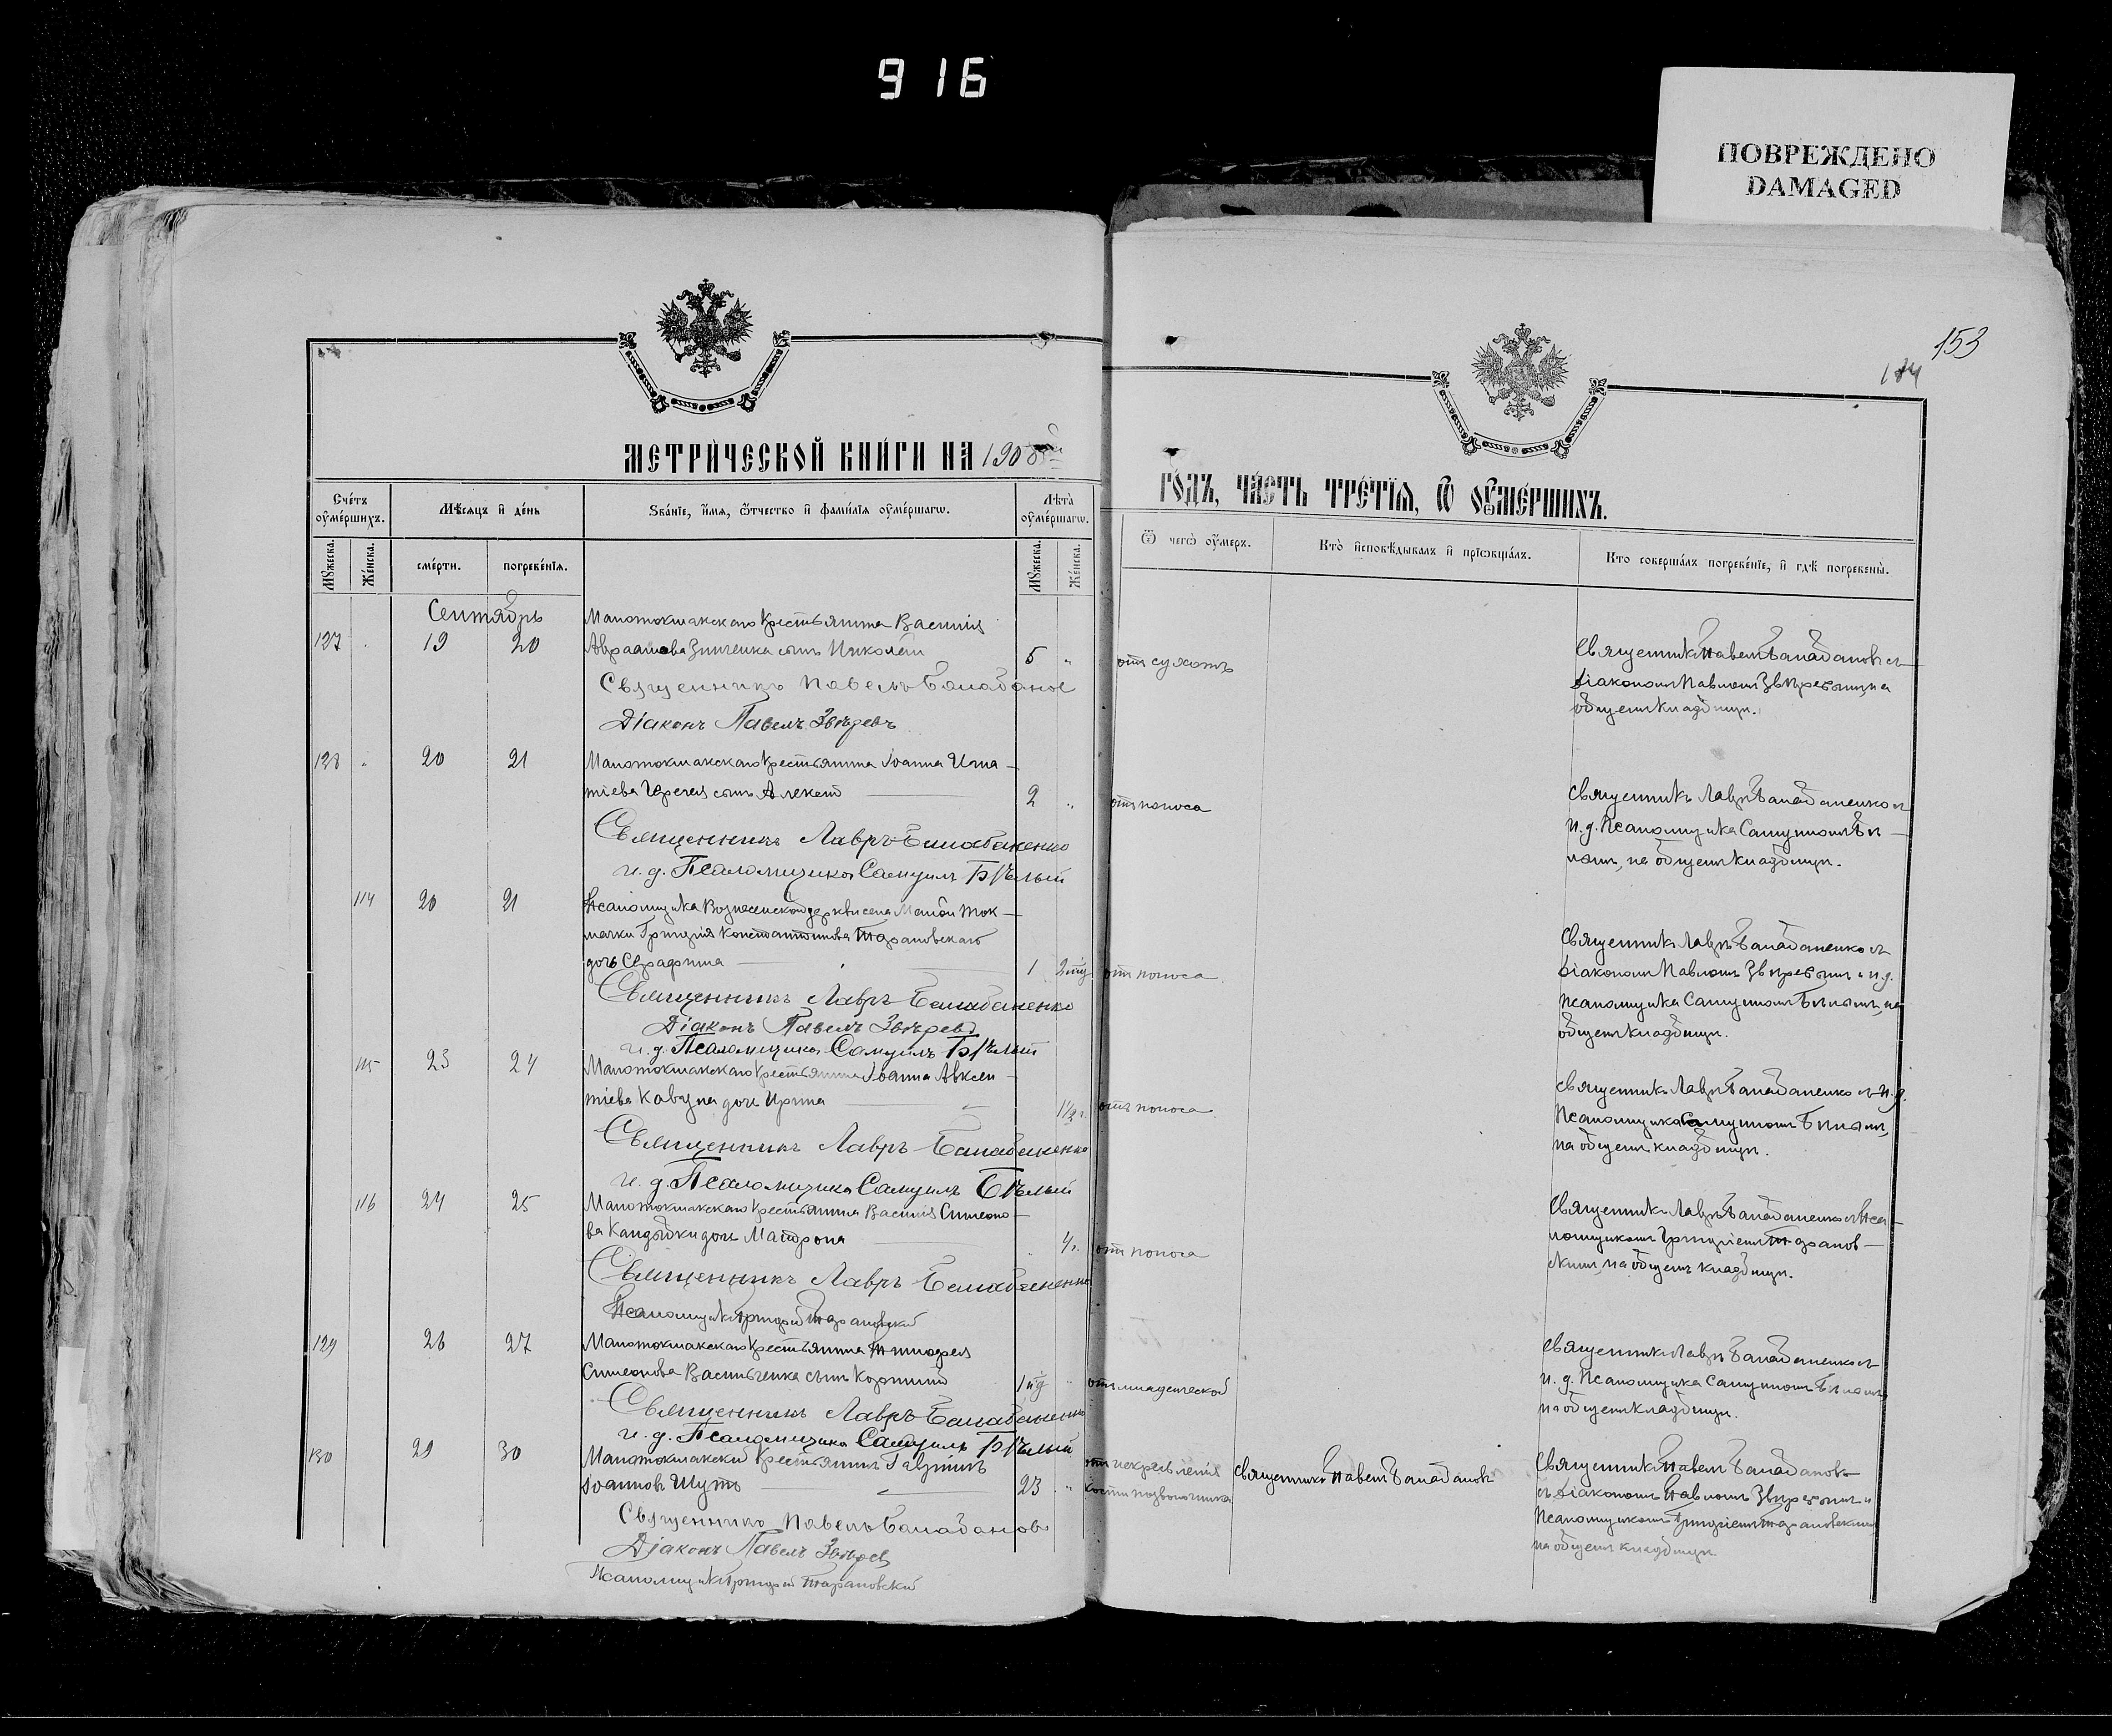 916
ПОВРЕЖДЕНО
DAMAGED
153
МЕТРИЧЕСКОЙ КНИГИ НА 1908
ГОДЪ, ЧАСТЬ ТРЕТІЯ, Ѿ ОУМЕРШИХЪ.
Счетъ оумершихъ.
Мѣсяцъ и день
Званіе, имя, ѿчество и фамилія оумершагѡ.
Лѣта оумершагѡ.
Ѿ чегѡ оумеръ.
Кто исповѣдывалъ и пріѡбщалъ.
Кто совершалъ погребеніе, и гдѣ погребены.
Мужеска.
Женска.
смерти.
погребенія.
Мужеска.
Женска.
Сентябрь
Малотокмакскаго крестьянина Василія
127 19 20 Авраамова Зинченка сынъ Николай 5 отъ сухотъ
Священникъ Павелъ Балабановъ
Діаконъ Павелъ Звѣревъ
Священникъ Павелъ Балабановъ съ
діакономъ Павломъ Звѣревымъ, на
общемъ кладбищѣ.
128 20 21 Малотокмакскаго крестьянина Іоанна Игна-
тіева сынъ Алексій 2 отъ поноса
Священникъ Лавръ Балабаненко
и. д. Псаломщика Самуилъ Бѣлый
Священникъ Лавръ Балабаненко съ
и. д. Псаломщика Самуиломъ Бѣ-
лымъ, на общемъ кладбищѣ.
114 20 21 Псаломщика Вознесенской церкви села Малой Ток-
мачки Григорія Константинова Тарановскаго
дочь Серафима 1 2 отъ поноса
Священникъ Лавръ Балабаненко
Діаконъ Павелъ Звѣревъ
и. д. Псаломщика Самуилъ Бѣлый
Священникъ Лавръ Балабаненко съ
діакономъ Павломъ Звѣревымъ и и. д.
Псаломщика Самуиломъ Бѣлымъ, на
общемъ кладбищѣ.
115 23 24 Малотокмакскаго крестьянина Іоанна Авксен-
тіева Кавуна дочь Ирина 1½ г. отъ поноса
Священникъ Лавръ Балабаненко
и. д. Псаломщика Самуилъ Бѣлый
Священникъ Лавръ Балабаненко съ и. д.
Псаломщика Самуиломъ Бѣлымъ,
на общемъ кладбищѣ.
116 24 25 Малотокмакскаго крестьянина Василія Симеоно-
ва дочь Матрона отъ поноса
Священникъ Лавръ Балабаненко
Псаломщикъ Григорій Тарановскій
Священникъ Лавръ Балабаненко съ Пса-
ломщикомъ Григоріемъ Таранов-
скимъ, на общемъ кладбищѣ.
129 26 27 Малотокмакскаго крестьянина Тимофея
Симеонова Васильченка сынъ Корнилій отъ младенческой
Священникъ Лавръ Балабаненко
и. д. Псаломщика Самуилъ Бѣлый
Священникъ Лавръ Балабаненко съ
и. д. Псаломщика Самуиломъ Бѣлымъ
на общемъ кладбищѣ.
130 29 30 Малотокмакскій крестьянинъ Гавріилъ
Іоанновъ Шутъ 23 отъ искревленія
кости позвоночника
Священникъ Павелъ Балабановъ
Священникъ Павелъ Балабановъ
Діаконъ Павелъ Звѣрев
Псаломщикъ Григорій Тарановскій
Священникъ Павелъ Балабановъ
съ діакономъ Павломъ Звѣревымъ и
Псаломщикомъ Григоріемъ Тарановскимъ
на общемъ кладбищѣ